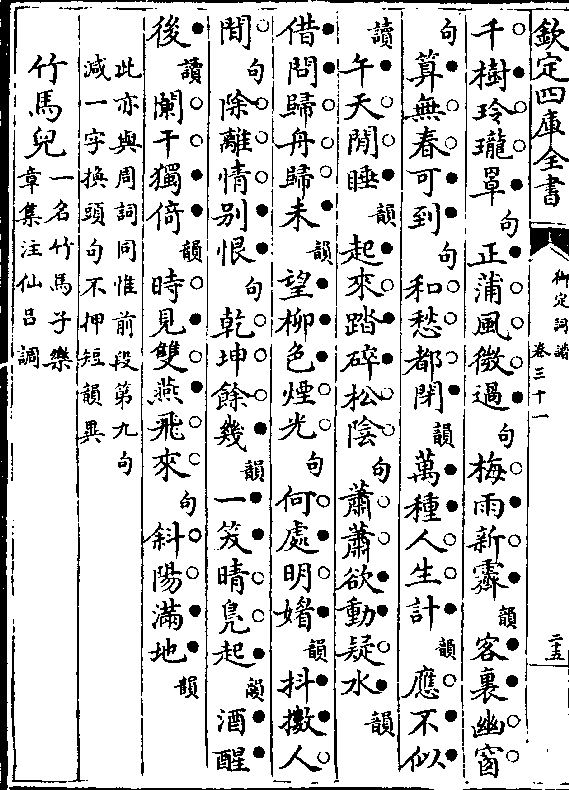 欽定四庫全書
御定詞譜
卷三十一
二十五
千樹玲瓏罩句正蒲風微過句梅雨新霽韻客裏幽窗
句算無春可到句和愁都閉韻萬種人生計韻應不似
讀午天閒睡韻起來踏碎松陰句蕭蕭欲動疑水韻
借問歸舟歸未韻望柳色煙光句何處明媚韻抖擻人
間句除離情别恨句乾坤餘幾韻一笑晴鳧起韻酒醒
後讀闌干獨倚韻時見雙燕飛來句斜陽滿地韻
此亦與周詞同惟前段第九句
減一字換頭句不押短韻異
竹馬兒一名竹馬子樂
章集注仙呂調